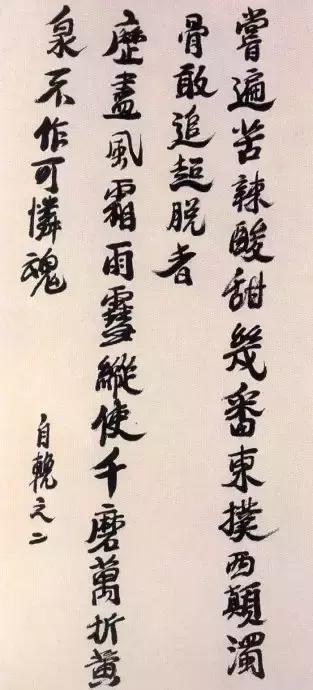 嘗遍苦辣酸甜幾番東撲西顛濁
骨敢追超脫者
歷盡風霜雨雪縱使千磨萬折黄
泉不作可憐魂
自輓之二